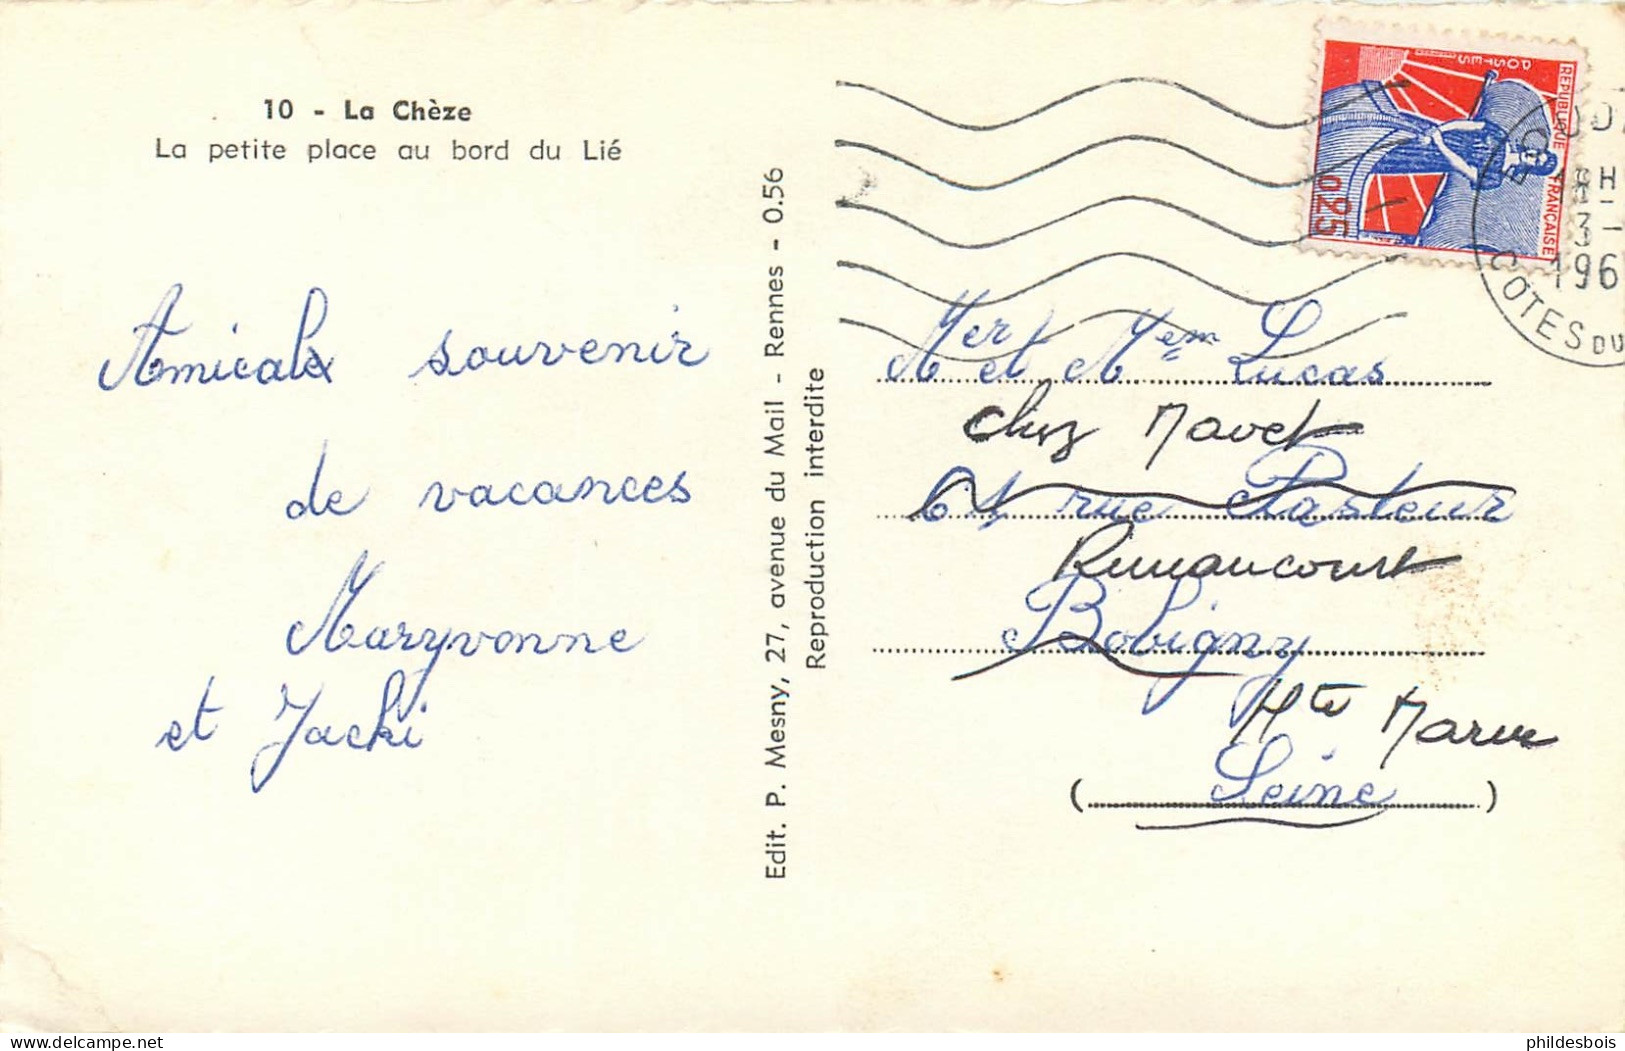 10 - La Chèze
La petite place au bord du Lié
Amicales souvenir
de vacances
Maryvonne
et Jacki
Edit. P. Mesny, 27, avenue du Mail - Rennes - 0.56
Reproduction interdite
REPUBLIQUE FRANÇAISE
POSTES
0.25
3 -
196
COTES DU
Mer et Mem Lucas
chez Navet
61 rue Pasteur
Rimaucourt
Bobigny
Hte Marne
(Seine)
phildesbois